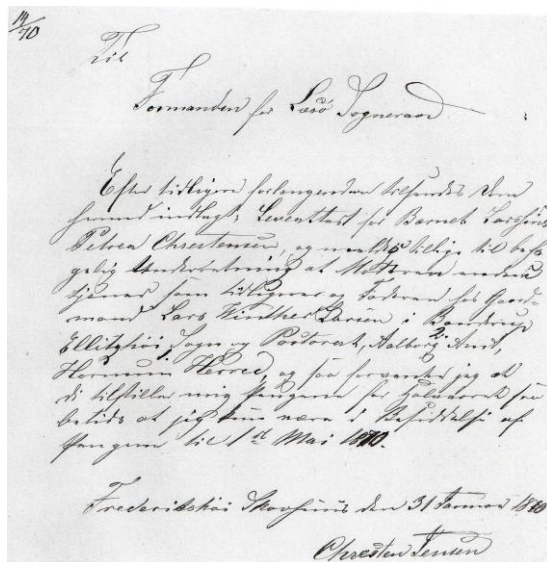 14/70
Til
Formanden for Læsö Sogneraad
Efter tidligere forlangende tilsendes Dem
herved indlagt: Leveattest for Barnet
Petrea Chrestensen, og meldes tillige til beha-
gelig Underretning at Moderen endnu
tjener som tidligere og Faderen hos Gaard-
mand Lars Winther Larsen i
Ellitzhöi Sogn og Pastorat, Aalborg Amt,
Hornum Herred, og saa forventer jeg at
De tilstiller mig Pengene for Halvaaret saa
betids at jeg kan være i Besiddelse af
Pengene til 1st Mai 1870.
Frederikshöi Skovhuus den 31 Januar 1870
Chresten Jensen